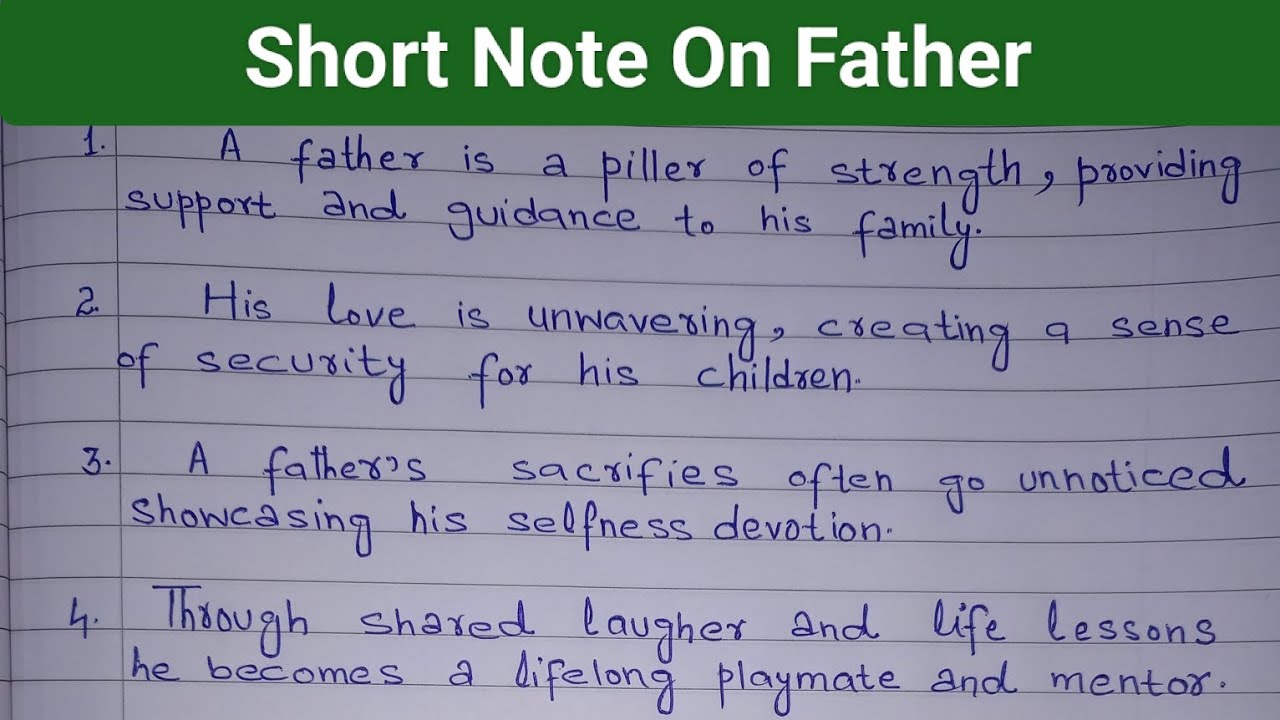 Short Note On Father
1. A father is a piller of strength, providing
support and guidance to his family.
2. His love is unwavering, creating a sense
of security for his children.
3. A father's sacrifies often go unnoticed
showcasing his selfness devotion.
4. Through shared laugher and life lessons
he becomes a lifelong playmate and mentor.